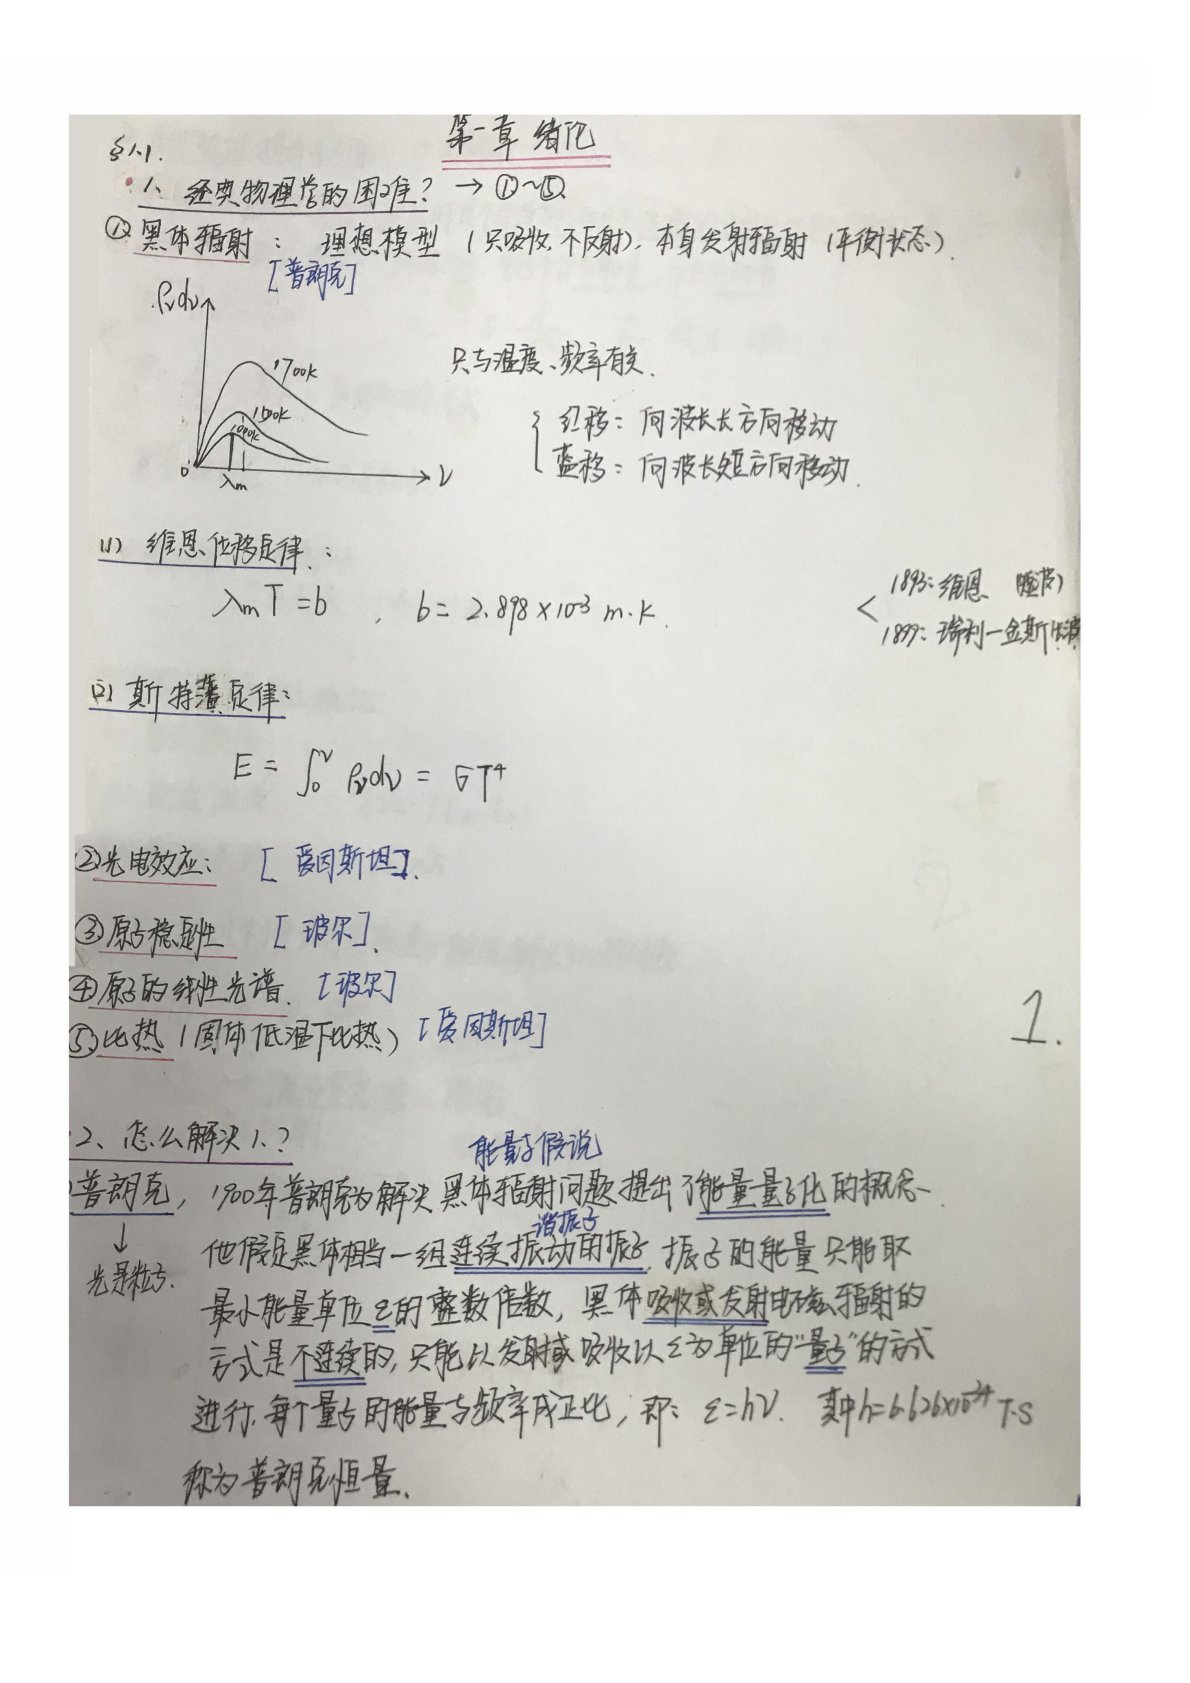 第一章 绪论
§1.1.
1、经典物理学的困难? → ①~⑤
① 黑体辐射: 理想模型 (只吸收,不反射),本身发射辐射 (平衡状态).
[普朗克]
ρνdν
1700K
1500K
1000K
0
λm
ν
只与温度、频率有关.
{ 红移: 向波长长方向移动
蓝移: 向波长短方向移动.
(1) 维恩位移定律:
λmT=b , b= 2.898×10⁻³ m.K.
< 1893: 维恩
1899: 瑞利-金斯
(2) 斯特藩定律:
E = ∫₀^ν ρνdν = σT⁴
②光电效应: [爱因斯坦].
③原子稳定性 [玻尔].
④原子的线性光谱. [玻尔]
⑤比热 (固体低温下比热) [爱因斯坦]
1.
2、怎么解决1.?
能量子假说
普朗克, 1900年普朗克为解决黑体辐射问题提出了能量量子化的概念-
谐振子
↓ 他假定黑体相当一组连续振动的振子,振子的能量只能取
光是粒子.
最小能量单位ε的整数倍数,黑体吸收或发射电磁辐射的
方式是不连续的,只能以发射或吸收以ε为单位的"量子"的方式
进行,每个量子的能量与频率成正比,即: ε=hν. 其中h=6.626×10⁻³⁴ J.S
称为普朗克恒量.